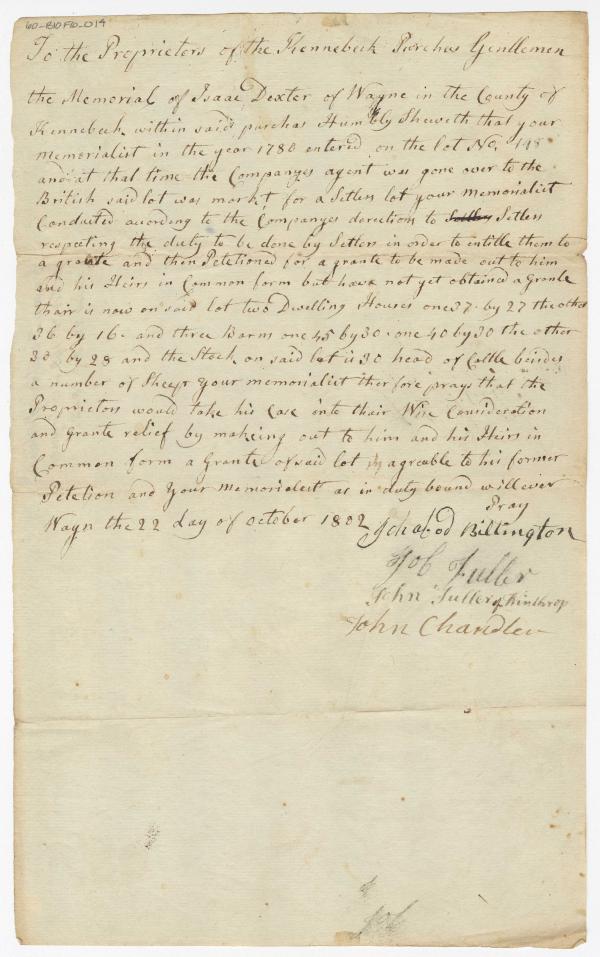 60-B10F10-014
To the Proprietors of the Kennebeck Purchas Gentlemen
the Memorial of Isaac Dexter of Wayne in the County of
Kennebeck within said purchas Humbly Sheweth that your
memorialist in the year 1780 entered on the lot No. 148
and at that time the Companyes agent was gone over to the
British said lot was markt for a Setlers lot your memorialist
Conducted acording to the Companyes derection to Setlers
respecting the duty to be done by Setlers in order to entitle them to
a grante and then Petitioned for a grante to be made out to him
and his Heirs in Common form but have not yet obtained a Grante
thair is now on said lot two Dwelling Houses one 37 by 27 the other
36 by 16 and three Barns one 45 by 30 one 40 by 30 the other
by 28 and the Stock on said lot is 30 head of Cattle besides
a number of Sheep your memorialist therfore prays that the
Proprietors would take his Case into thair Wise Consideration
and Grante relief by making out to him and his Heirs in
Common form a Grante of said lot agreable to his former
Petetion and your Memorialest as in duty bound will ever
Pray
Wayn the 22 day of October 1802
Ichabod Billington
Job Fuller
John Fuller of Winthrop
John Chandler
Job